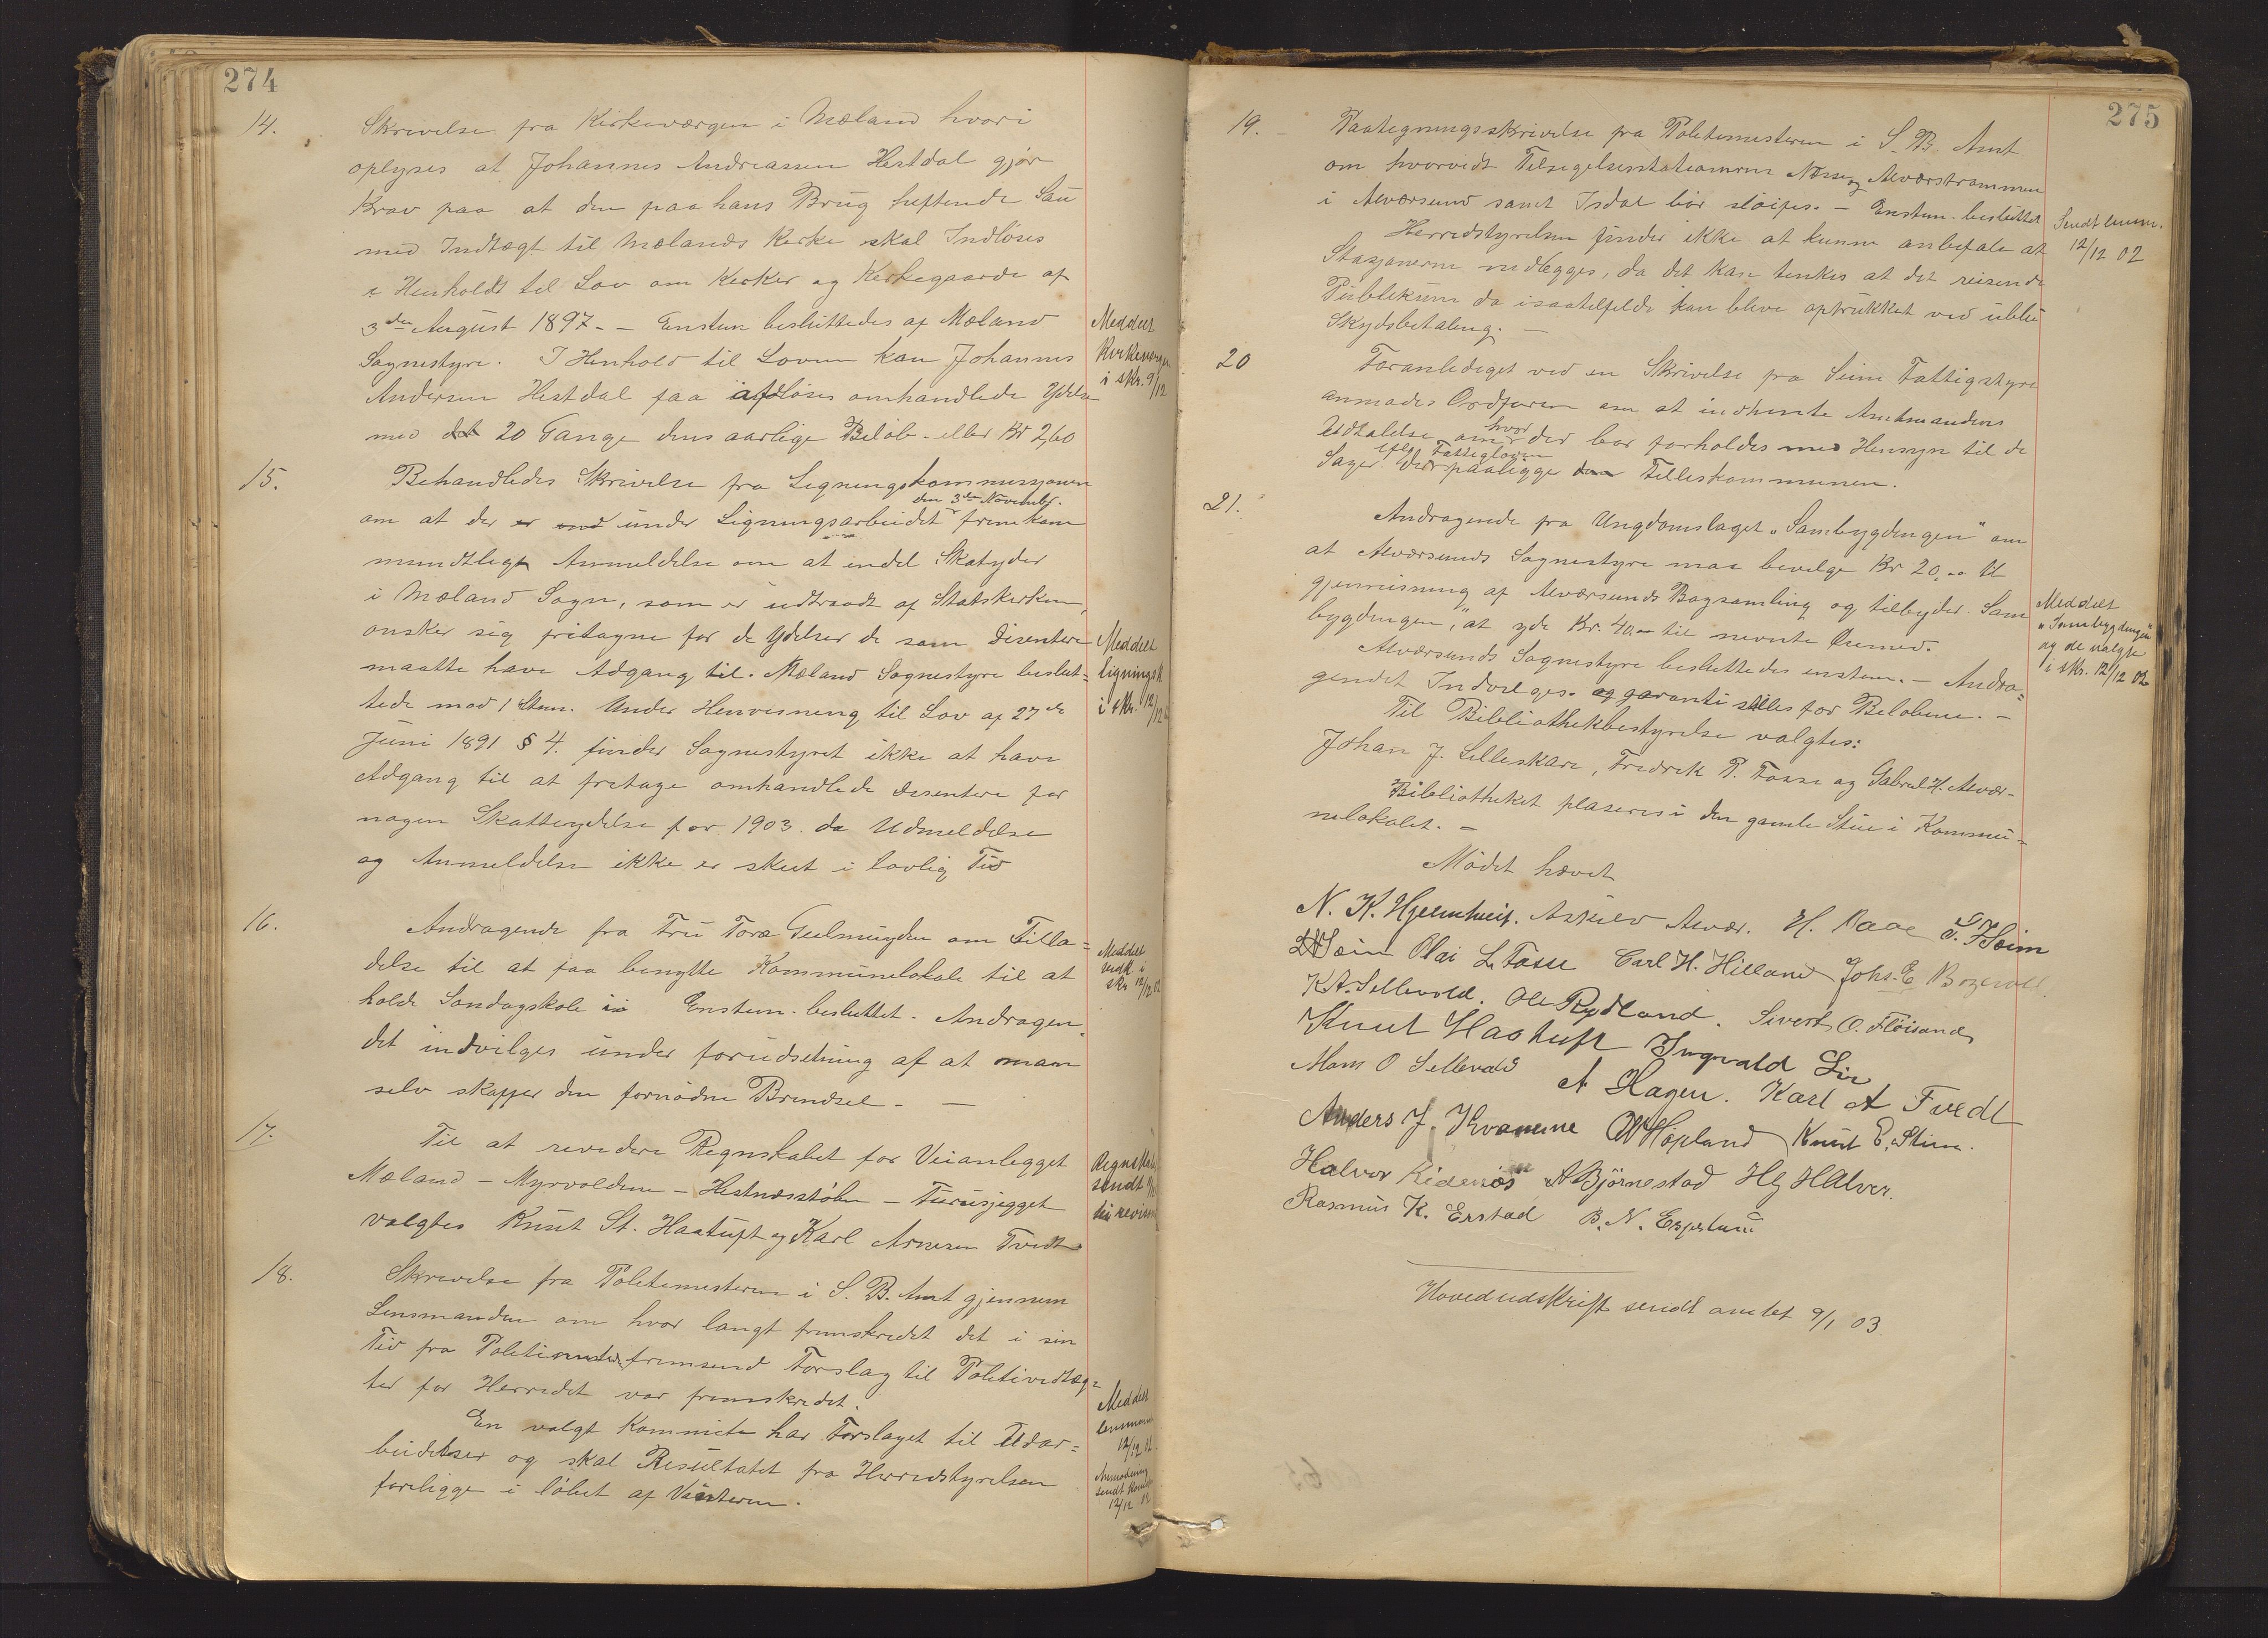 274
14. Skrivelse fra Kirkeværgen i Mæland hvori
oplyses at Johannes Andreassen Hestdal gjør
Krav paa at den paa hans Brug heftende Sau
med Indtægt til Mælands Kirke skal Indløses
i Henholdt til Lov om Kirker og Kirkegaarde af
3die August 1897. - Enstem besluttedes af Mæland
Sognestyre. I Henhold til Loven kan Johannes
Andersen Hestdal faa afløses omhandlede Ydelse
med det 20 Gange dens aarlige Beløb - eller Kr 2,60
Meddelt
Kirkeværgen
i skr. 9/12
15. Behandledes Skrivelse fra Ligningskommissjonen
den 3die November.
om at der er end under Ligningsarbeidet fremkom
mundtlegt Anmeldelse om at endel Skatyder
i Mæland Sogn, som er udtraadt af Statskirken,
ønsker sig fritagne for de Ydelser de som Disentere
maatte have Adgang til. Mæland Sognestyre beslut=
tede mod 1 Stem. Under Henvisning til Lov af 27de
Juni 1891 § 4. finder Sognestyret ikke at have
Adgang til at fretage omhandlede Disentere for
nogen Skatteydelse for 1903. da Udmeldelse
og Anmeldelse ikke er skeet i lovlig Tid
Meddelt
ligningsk
i skr. 12/12
16. Andragende fra Fru Tora Geelmuyden om Tilla=
delse til at faa benytte Kommunelokale til at
holde Søndagskole i Enstem. besluttet. Andragen=
det indvilges under forudsetning af at man
selv skaffer den fornødne Brendsel. -
Meddelt
vedk i
skr 12/12 02
17. Til at revidere Regnskabet for Veianlegget
Mæland - Myrvolden - Hestnesstølen - Furusjegget
valgtes Knut St. Haatuft og Karl Arnesen Tvedt
Regnskabet
sendt
til revision
18. Skrivelse fra Politimesteren i S. B. Amt gjennem
Lensmanden om hvor langt fremskredet det i sin
Tid fra Politimesteren fremsend Forslag til Politivedtæg=
ter for Herredet var fremskredet.
En valgt Kommite har Forslaget til Udar=
beidelser og skal Resultatet fra Herredstyrelsen
foreligge i løbet af Vinteren.
Meddelt
lensmand
12/12 02
Anmodning
sendt Komite
12/12 02
275
19. - Paategningsskrivelse fra Politimesteren i S. B. Amt
om hvorvidt Tilsigelsesstationerne Nesse og Alværstrømmen
i Alværsund samt Isdal bør sløifes. - Enstem. besluttet
Herredstyrelsen finder ikke at kunne anbefale at
Stasjonerne nedlægges, da det kan tenkes at det reisende
Publikum da isaatilfelde kan bleve optrukket ved ublu
Skydsbetaling. -
Sendt lensm.
12/12 02
20 Foranlediget ved en Skrivelse fra Seim Fattigstyre
anmodes Ordføren om at indhente Amtmandens
Udtalelse om hvor der bør forholdes med Hensyn til de
Sager der efter Fattigloven paaligge den Felleskommunen.
21. Andragende fra Ungdomslaget "Sambygdingen" om
at Alværsunds Sognestyre maa bevilge Kr 20,00 til
gjenreisning af Alværsunds Bogsamling og tilbyder "Sam
bygdingen", at yde Kr. 40,00 til nevnte Øiemed.
Alværsunds Sognestyre besluttedes enstem. - Andra=
gendet Indvilges. og garanti stilles for Beløbene. -
Til Bibliothekbestyrelse valgtes:
Johan J. Lilleskare, Fredrek P. Fosse og Gabriel H. Alvær -
Bibliotheket plaseres i den gamle Stue i Kommu=
nelokalet. -
Meddelt
"Sambygdingen"
og de valgte
i skr. 12/12 02
Mødet hævet
N. K. Hjelmtveit. Askild Alvær. H. Raae T. Hseim
Olai L. Fosse Carl H. Hilland Johs. E Bozevold.
K. A. Sellevold. Ole Rydland. Sivert O. Fløisand
Knut Haatuft Ingvald Lie
Mons O Sellevold A Hagen. Karl A Tvedt
Anders J. Kvamme O Høpland Knut E. Stim.
Halvor Kidenøs A Bjørnestad H HAlver.
Rasmus K. Erstad B. N. Erstad
Hovedudskrift sendt amtet 9/1 03